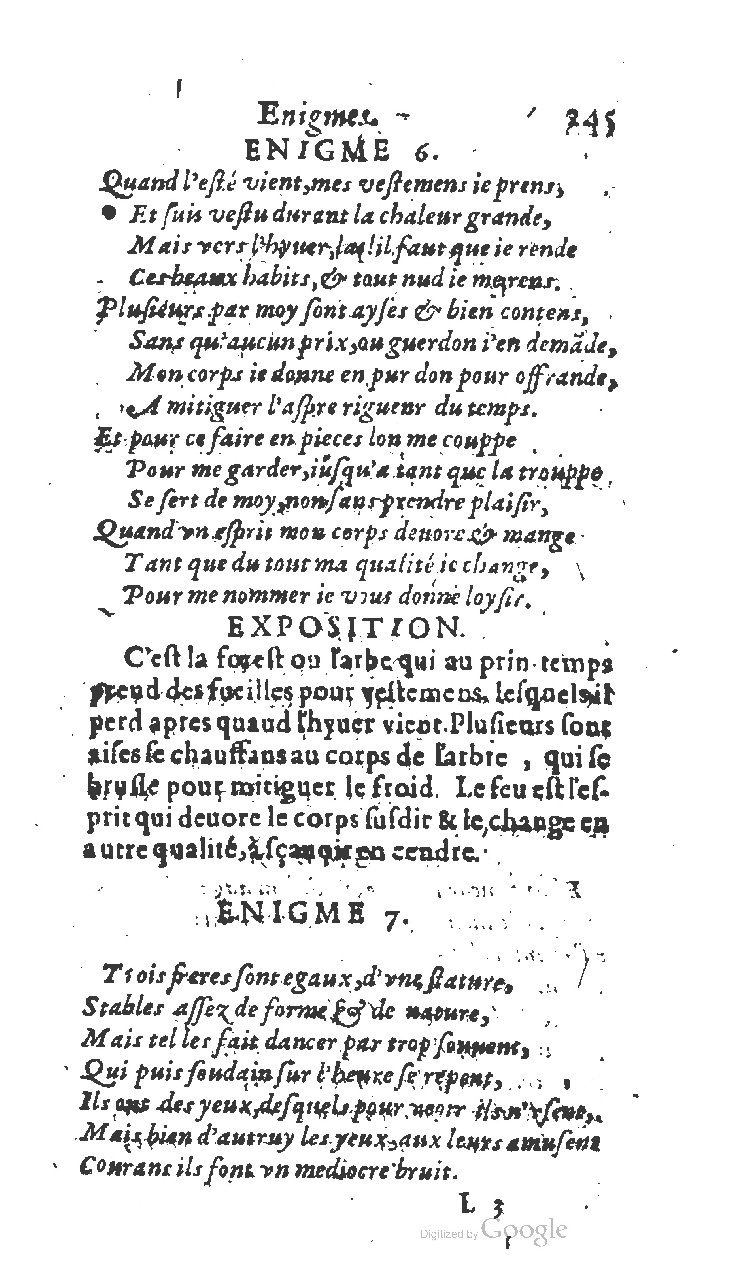 Enigmes. 245
ENIGME 6.
Quand l'esté vient, mes vestemens ie prens,
Et suis vestu durant la chaleur grande,
Mais vers l'hyuer, las! il faut que ie rende
Ces beaux habits, & tout nud ie me rens.
Plusieurs par moy sont ayses & bien contens,
Sans qu'aucun prix, ou guerdon i'en demãde,
Mon corps ie donne en pur don pour offrande,
A mitiguer l'aspre rigueur du temps.
Et pour ce faire en pieces lon me couppe
Pour me garder, iusqu'a tant que la trouppe
Se sert de moy, non sans prendre plaisir,
Quand vn esprit mon corps deuore & mange
Tant que du tout ma qualité ie change,
Pour me nommer ie vous donne loysir.
EXPOSITION.
C'est la forest ou l'arbe qui au prin-temps
prend des fueilles pour vestemens, lesquels il
perd apres quaud l'hyuer vient. Plusieurs sont
aises se chauffans au corps de l'arbre , qui se
brusle pour mitiguer le froid. Le feu est l'es-
prit qui deuore le corps susdit & le change en
autre qualité, à sçauoir en cendre.
ENIGME 7.
Trois freres sont egaux, d'vne stature,
Stables assez de forme & de nature,
Mais tel les fait dancer par trop souuent,
Qui puis soudain sur l'heure se repent,
Ils ont des yeux, desquels pour veoir ils n'vsent,
Mais bien d'autruy les yeux, aux leurs amusent
Courans ils font vn mediocre bruit.
L 3
Digitized by Google